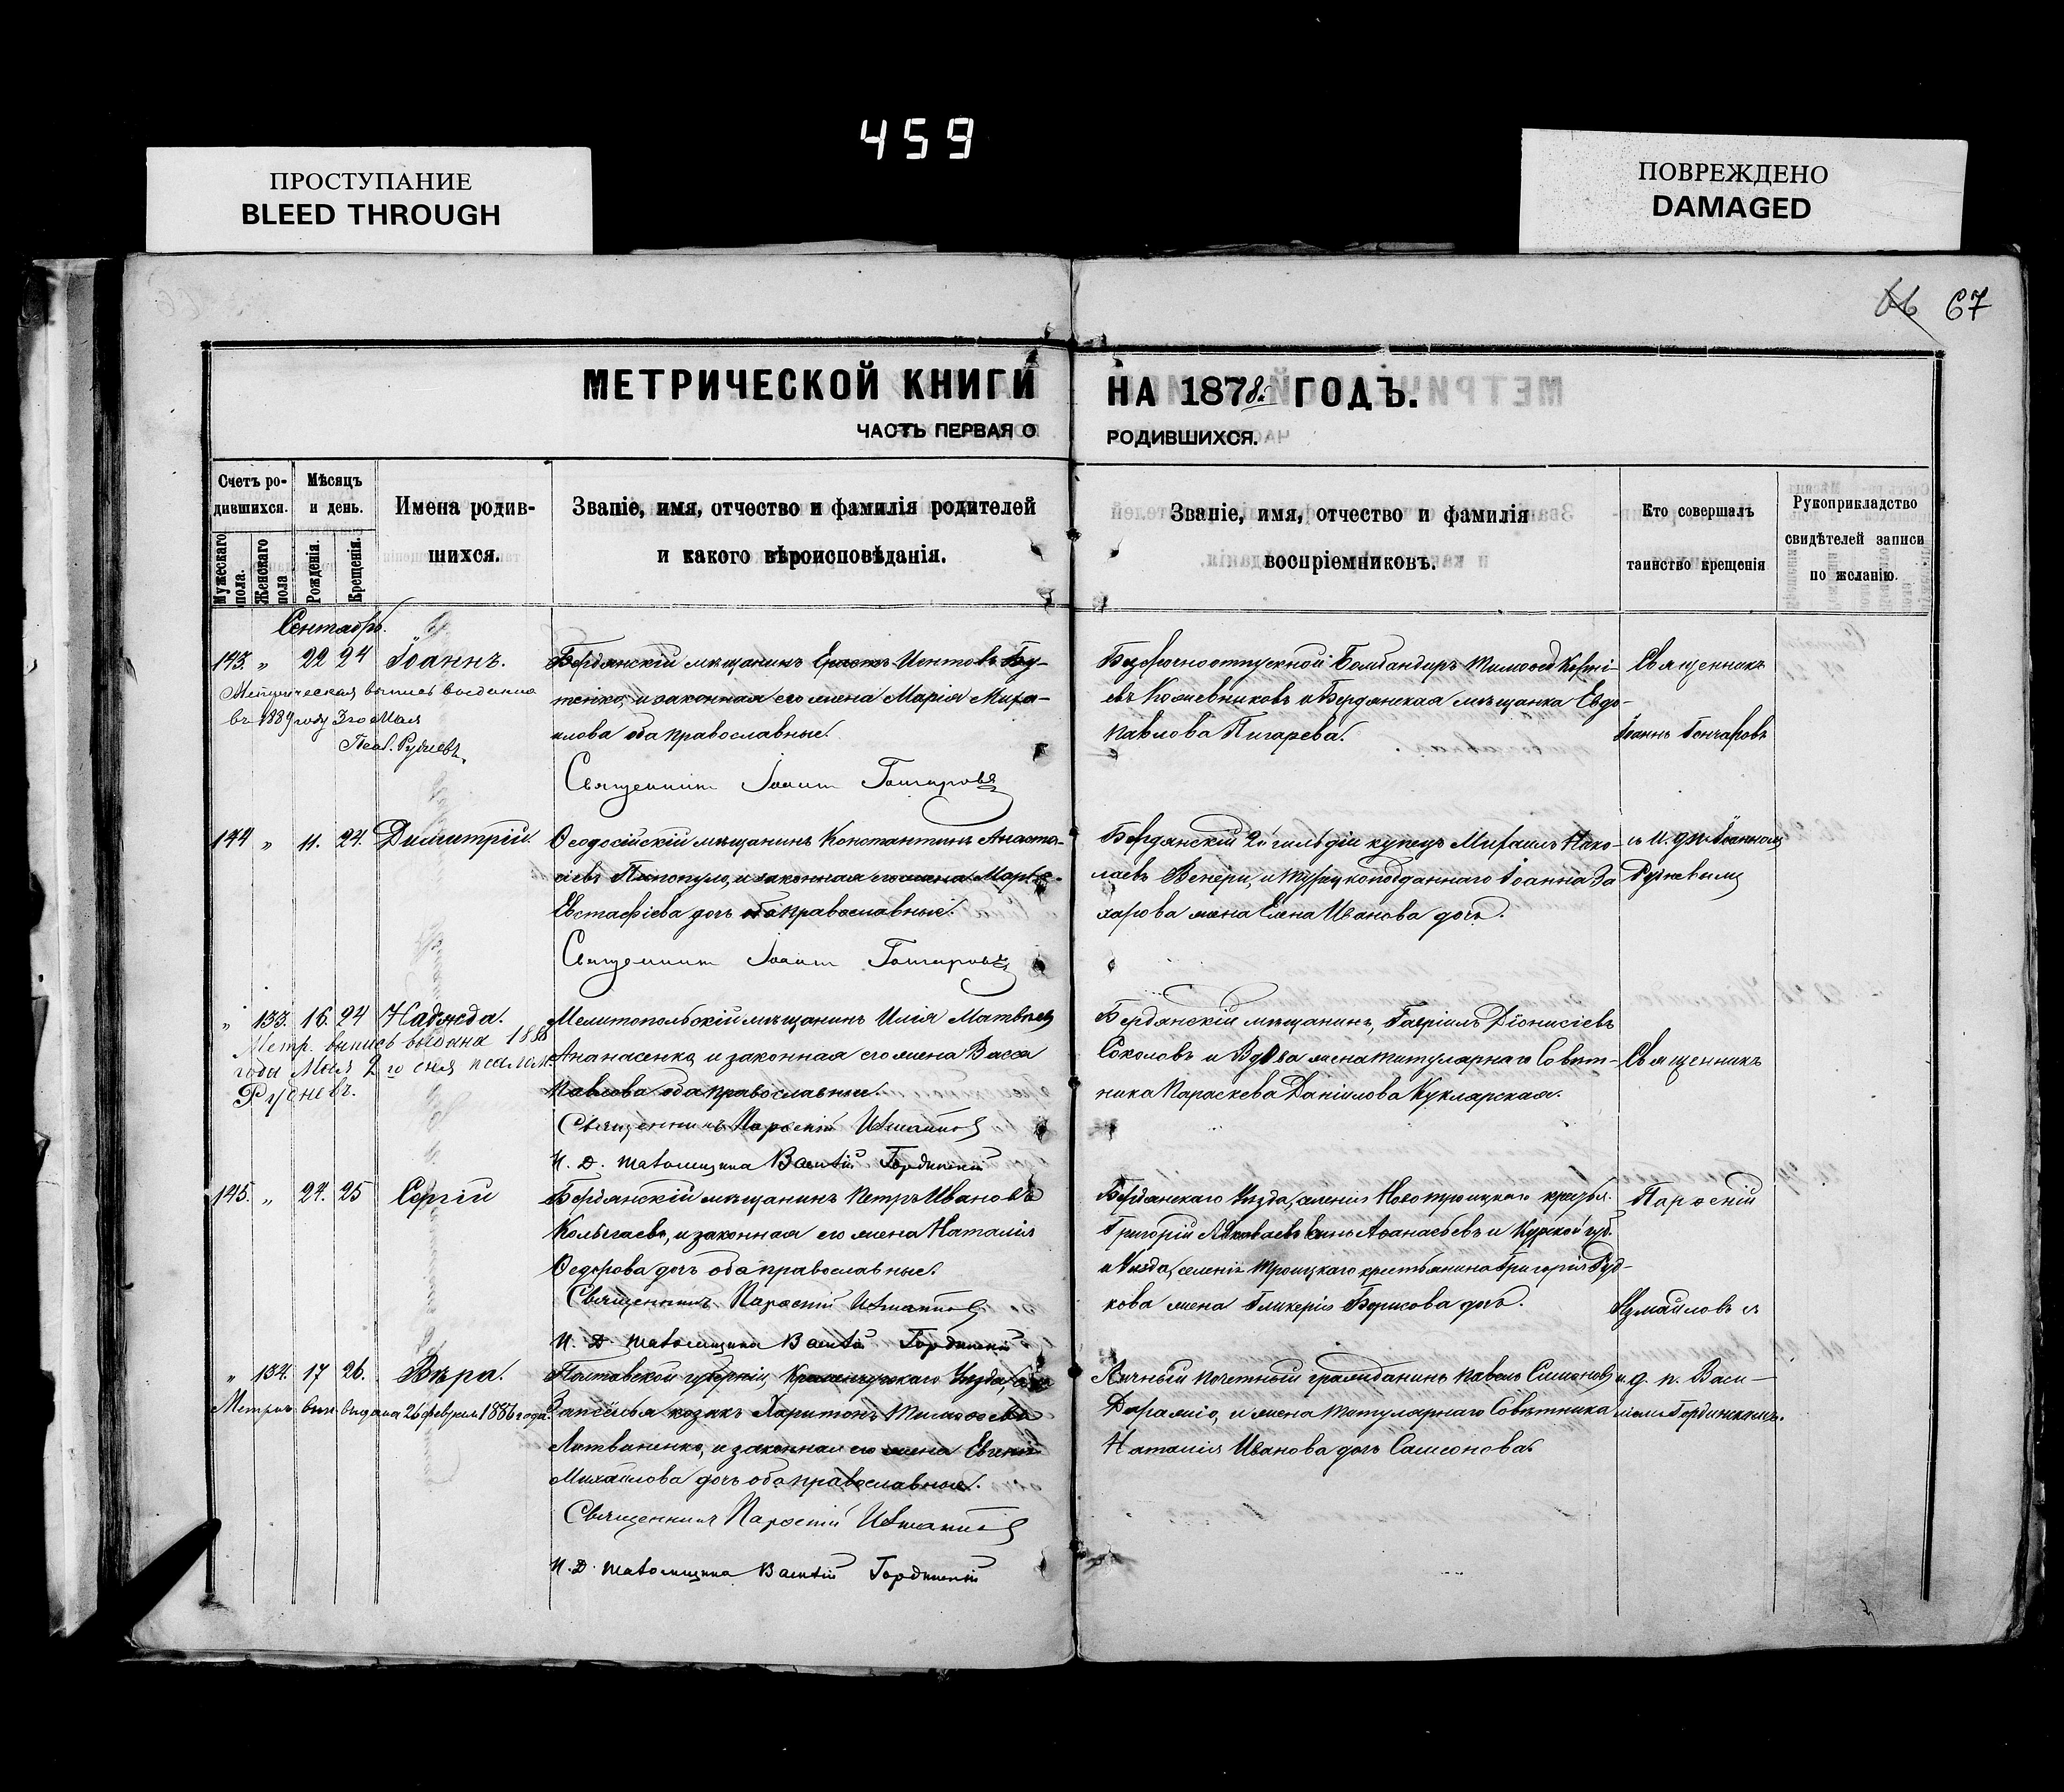 459
ПРОСТУПАНИЕ
BLEED THROUGH
ПОВРЕЖДЕНО
DAMAGED
66 67
МЕТРИЧЕСКОЙ КНИГИ НА 1878 ГОДЪ.
ЧАСТЬ ПЕРВАЯ О РОДИВШИХСЯ.
Счетъ ро-
дившихся.
Мужескаго пола.
Женскаго пола
Мѣсяцъ
и день.
Рожденія.
Крещенія.
Имена родив-
шихся.
Званіе, имя, отчество и фамилія родителей
и какого вѣроисповѣданія.
Званіе, имя, отчество и фамилія
воспріемниковъ.
Кто совершалъ
таинство крещенія
Рукоприкладство
свидѣтелей записи
по желанію.
Сентябрь.
143. " 22 24 Іоаннъ.
Метрическая выпись выдана
въ 1889 году 3го Мая
Псал. Рудневъ
Бердянскій мѣщанинъ
и законная его жена Марія Миха-
илова оба православные.
Священникъ Іоаннъ Гончаровъ
Безсрочноотпускной Бомбандиръ Тимоѳей
Кожевниковъ и Бердянская мѣщанка Евдо-
Павлова Пигарева.
Священникъ
Іоаннъ Гончаровъ
144 " 11. 24. Димитрій.
Ѳеодосійскій мѣщанинъ Константинъ Анаста-
сіевъ Папопуло, и законная его жена Марія
Евстафіева дочь оба православные.
Священникъ Іоаннъ Гончаровъ
Бердянскій 2й гильдіи купецъ Михаилъ Нико-
лаевъ Венери, и Турецкоподданнаго Іоанна За
харова жена Елена Иванова дочь.
съ и. д. п. Іоанномъ
Рудневымъ
" 133. 16. 24 Надежда.
Метр. выпись выдана 1888
года Мая 2го дня псалом.
Рудневъ.
Мелитопольскій мѣщанинъ Илія Матвѣевъ
Ананасенко, и законная его жена Васса
Павлова оба православные.
Священникъ Паросній Измаиловъ
И. Д. псаломщика Василій Гординскій
Бердянскій мѣщанинъ, Гавріилъ Діонисіевъ
Соколовъ и Вдова жена титулярнаго Совѣт-
ника Параскева Даніилова Куклярская.
Священникъ
145. " 24. 25 Сергій
Бердянскій мѣщанинъ Петръ Ивановъ
Колыгаевъ, и законная его жена Наталія
Ѳедорова дочь оба православные.
Священникъ Паросній Измаиловъ
И. Д. псаломщика Василій Гординскій
Бердянскаго Уѣзда, селенія Новотроицкаго крестья.
Григорій Аѳанасьевъ и Курской губ.
и Уѣзда, селенія Троицкаго крестьянина Григорія Руд-
кова жена Гликерія Борисова дочь.
Паросній
Измайловъ съ
" 134. 17 26. Вѣра.
Метрич. вып. выдана 26 февраля 1886 года.
Полтавской губерніи, Кременчугскаго Уѣзда,
козакъ Харитонъ Тимоѳеевъ
Литвиненко, и законная его жена Евгенія
Михаилова дочь оба православные.
Священникъ Паросній Измаиловъ
И. Д. псаломщика Василій Гординскій
Личный почетный гражданинъ Павелъ Симоновъ
и жена Титулярнаго Совѣтника
Наталія Иванова дочь Самсонова.
и. д. п. Васи-
ліемъ Гординскимъ.